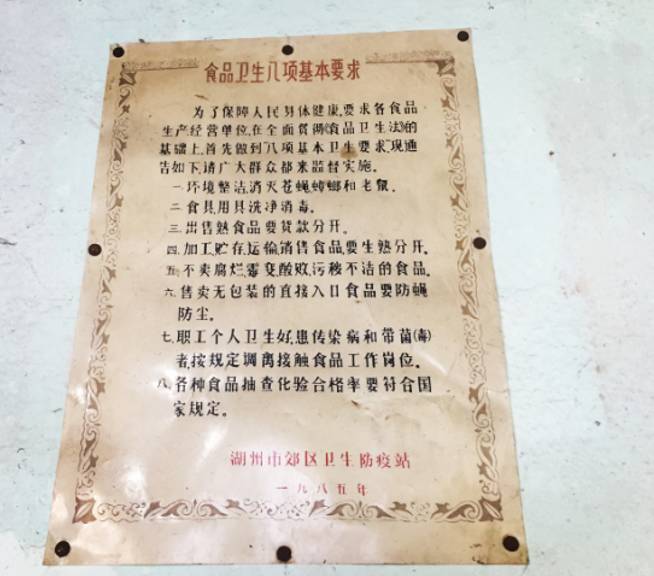 食品卫生八项基本要求
为了保障人民身体健康,要求各食品
生产经营单位,在全面贯彻《食品卫生法》的
基础上,首先做到“八项基本卫生要求”,现通
告如下,请广大群众都来监督实施。
一.环境整洁,消灭苍蝇,蟑螂和老鼠。
二.食具,用具洗净消毒。
三.出售熟食品要货款分开。
四.加工,贮存,运输,销售食品,要生熟分开。
五.不卖腐烂,霉变,酸败,污秽不洁的食品。
六.售卖无包装的直接入口食品要防蝇
防尘。
七.职工个人卫生好,患传染病和带菌(毒)
者,按规定调离接触食品工作岗位。
八.各种食品抽查化验合格率要符合国
家规定。
湖州市郊区卫生防疫站
一九八五年